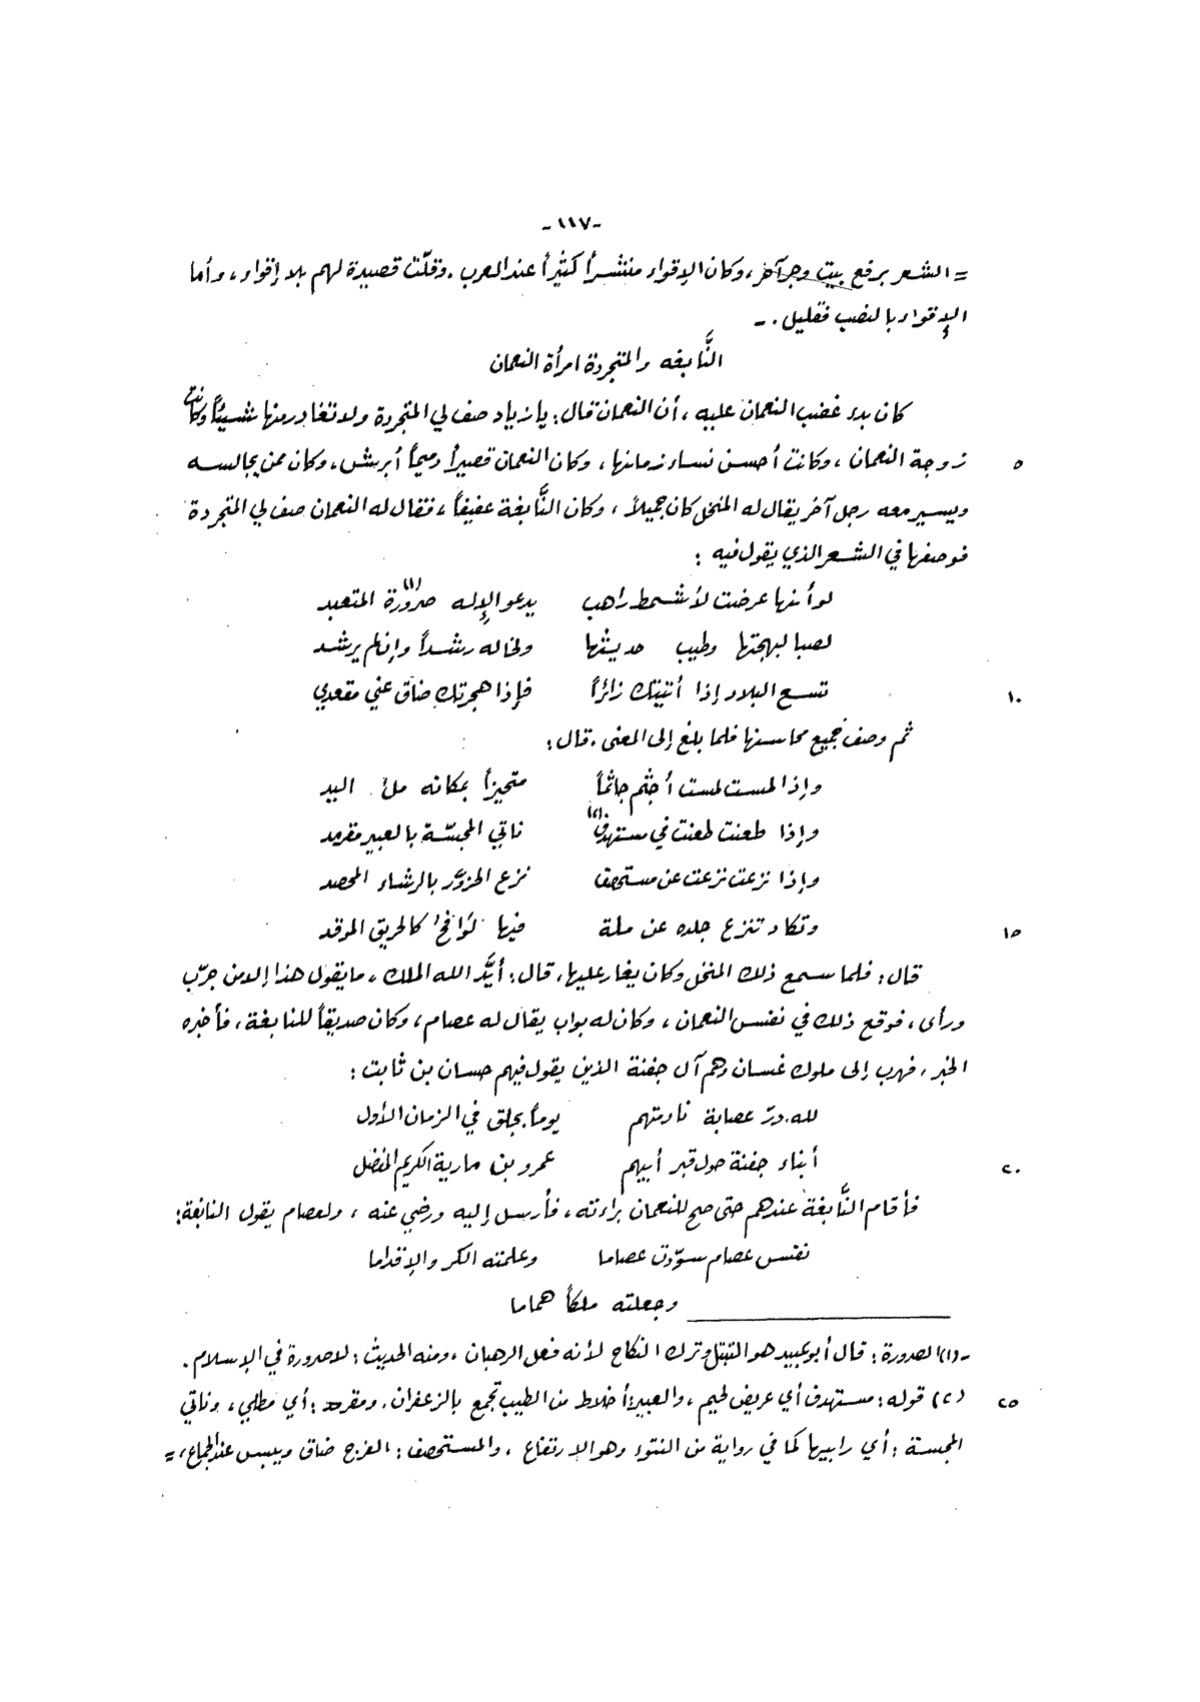 -١١٧-
= الشعر برفع بيت وجر آخر، وكان الإقواء منتشراً كثيراً عند العرب. وقلّت قصيدة لهم بلا إقواء، وأما
الإقواء بالنصب فقليل. -
النَّابغه والمتجردة امرأة النعمان
كان بدء غضب النعمان عليه، أن النعمان قال: يا زياد صف لي المتجردة ولا تغادر منها شيئاً وكانت
٥ زوجة النعمان، وكانت أحسن نساء زمانها، وكان النعمان قصيراً دميماً أبرش، وكان ممن يجالسه
ويسير معه رجل آخر يقال له المنخل كان جميلاً، وكان النَّابغة عفيفاً، فقال له النعمان صف لي المتجردة
فوصفها في الشعر الذي يقول فيه:
لو أنها عرضت لأشمط راهب يدعو الإله صرورة (١) المتعبد
لصبا لبهجتها وطيب حديثها ولخاله رشداً وإن لم يرشد
١٠ تسع البلاد إذا أتيتك زائراً فإذا هجرتك ضاق عني مقعدي
ثم وصف جميع محاسنها فلما بلغ إلى المعنى. قال:
وإذا لمست لمست أجثم جاثماً متحيزاً بمكانه ملء اليد
وإذا طعنت طعنت في مستهدف (٢) ناتي المجسّة بالعبير مقرمد
وإذا نزعت نزعت عن مستحصف نزع الحزوّر بالرشاء المحصد
١٥ وتكاد تنزع جلده عن ملة فيها لوافح كالحريق الموقد
قال: فلما سمع ذلك المنخل وكان يغار عليها، قال: أيَّد الله الملك، ما يقول هذا إلا من جرّب
ورأى، فوقع ذلك في نفس النعمان، وكان له بواب يقال له عصام، وكان صديقاً للنابغة، فأخبره
الخبر، فهرب إلى ملوك غسان وهم آل جفنة الذين يقول فيهم حسان بن ثابت:
لله درّ عصابة نادمتهم يوماً بجلق في الزمان الأول
٢٠ أبناء جفنة حول قبر أبيهم عمرو بن مارية الكريم المفضل
فأقام النَّابغة عندهم حتى صح للنعمان براءته، فأرسل إليه ورضي عنه، ولعصام يقول النابغة:
نفس عصام سوّدت عصاما وعلمته الكر والإقداما
وجعلته ملكاً هماما
- (١) الصرورة: قال أبو عبيد هو التبتل وترك النكاح لأنه فعل الرهبان، ومنه الحديث: لا صرورة في الإسلام.
٢٥ (٢) قوله: مستهدف أي عريض لحيم، والعبير: أخلاط من الطيب تجمع بالزعفران. ومقرمد: أي مطلي، وناتي
المجسة: أي رابيها كما في رواية من النتوء وهو الارتفاع، والمستحصف: الفرج ضاق ويبس عند الجماع، =